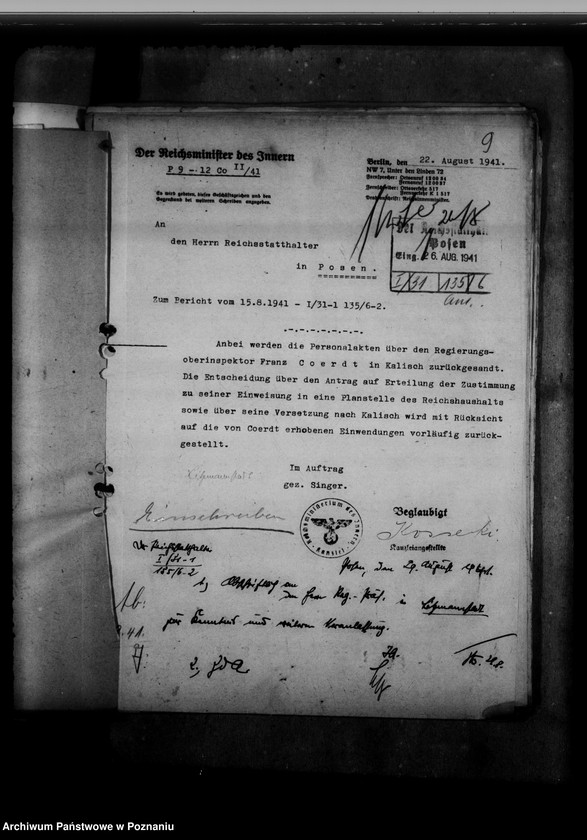 9
Der Reichsminister des Innern
P 9 - 12 Co II/41
Es wird gebeten, dieses Geschäftszeichen und den
Gegenstand bei weiteren Schreiben anzugeben.
Berlin, den 22. August 1941.
NW 7, Unter den Linden 72
An
den Herrn Reichsstatthalter
in Posen.
Posen
Eing. 26. AUG. 1941
I/31 135/6
Anl.
Zum Bericht vom 15.8.1941 - I/31-1 135/6-2.
-.-.-.-.-.-.-.-.
Anbei werden die Personalakten über den Regierungs-
oberinspektor Franz Coerdt in Kalisch zurückgesandt.
Die Entscheidung über den Antrag auf Erteilung der Zustimmung
zu seiner Einweisung in eine Planstelle des Reichshaushalts
sowie über seine Versetzung nach Kalisch wird mit Rücksicht
auf die von Coerdt erhobenen Einwendungen vorläufig zurück-
gestellt.
Im Auftrag
gez. Singer.
Einschreiben
Reichsministerium des Innern
Kanzlei
Beglaubigt
Kanzleiangestellte
Der Reichsstatthalter
I/31-1
135/6-2
Posen, den 29. August 1941.
1,) Abschriftlich an
den Herrn Reg.-Präs. in Litzmannstadt
zur Kenntnis und weiteren Veranlassung.
2, ZdA
I.A.
Archiwum Państwowe w Poznaniu